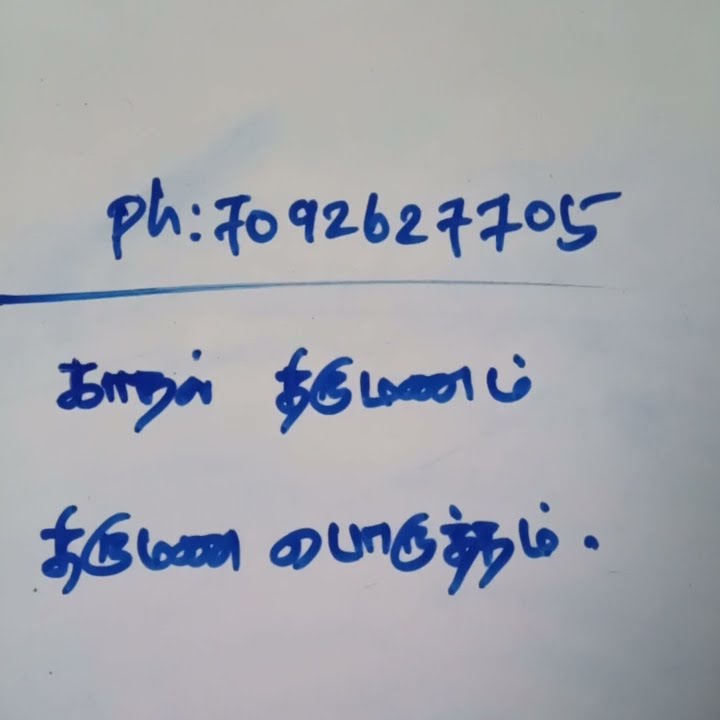 Ph: 7092627705
காதல் திருமணம்
திருமண பொருத்தம்.